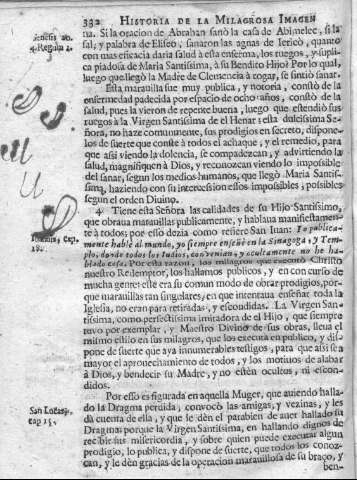 332 HISTORIA DE LA MILAGROSA IMAGEN
na. Si la oracion de Abrahan sanò la casa de Abimelec, si la
sal, y palabra de Eliseo, sanaron las aguas de Iericò, quanto
con mas eficacia daria salud à esta enferma, los ruegos, y supli-
ca piadosa de Maria Santissima, à su Bendito Hijo? Por lo qual,
luego que llegò la Madre de Clemencia à rogar, se sintiò sana.
Esta maravilla fue muy publica, y notoria, constò de la
enfermedad padecida por espacio de ocho años, constò de la
salud, pues la vieron de repente buena, luego que estendiò sus
ruegos à la Virgen Santissima de el Henar: esta dulcissima Se-
ñora, no haze comunmente, sus prodigios en secreto, dispone-
los de suerte que conste à todos el achaque, y el remedio, para
que assi viendo la dolencia, se compadezcan, y advirtiendo la
salud, magnifiquen à Dios, y reconozcan viendo lo impossible
del sanar, segun los medios humanos, que llegò Maria Santissi-
ma, haziendo con su intercession essos impossibles, possibles
segun el orden Divino.
4 Tiene esta Señora las calidades de su Hijo Santissimo,
que obraua marauillas publicamente, y hablaua manifiestamen-
te à todos; por esso dezia como refiere San Iuan: Yo publica-
mente hablè al mundo, yo siempre enseñè en la Sinagoga, y Tem-
plo, donde todos los Iudios, convenian, y ocultamente no he ha-
blado cosa. Por esta razon, los milagros que executò Christo
nuestro Redemptor, los hallamos publicos, y en concurso de
mucha gente: este era su comun modo de obrar prodigios, por-
que marauillas tan singulares, en que intentaua enseñar toda la
Iglesia, no eran para retiradas, y escondidas. La Virgen San-
tissima, como perfectissima imitadora de el Hijo, que siempre
tuvo por exemplar, y Maestro Divino de sus obras, lleua el
mismo estilo en sus milagros, que los executa en publico, y dis-
pone de suerte que aya innumerables testigos, para que assi sea
mayor el aprovechamiento de todos, y los motiuos de alabar
à Dios, y bendecir su Madre, y no estèn ocultos, ni escon-
didos.
Por esso es figurada en aquella Muger, que auiendo halla-
do la Dragma perdida, convocò las amigas, y vezinas, y les
dà cuenta de ella, y que le dèn el parabien de auer hallado su
Dragma: porque la Virgen Santissima, en hallando dignos de
recibir sus misericordia, y sobre quien puede executar algun
prodigio, lo publica, y dispone de suerte, que todos los conoz-
can, y le dèn gracias de la operacion marauillosa de su braço, y
ben-
4. Regum 2.
cap.
18.
San Lucas,
cap 15.